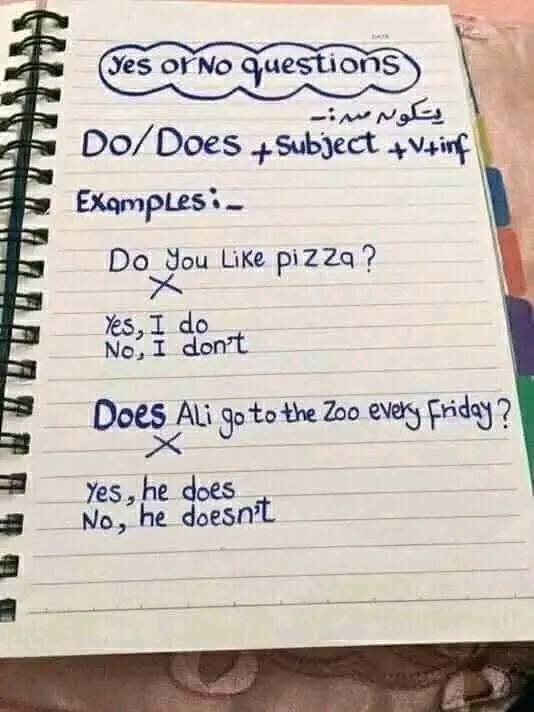 Yes or No questions
يتكون من :-
Do/Does + Subject + V+inf
Examples:-
Do you Like pizza?
X
Yes, I do
No, I don't
Does Ali go to the Zoo every Friday?
X
Yes, he does
No, he doesn't